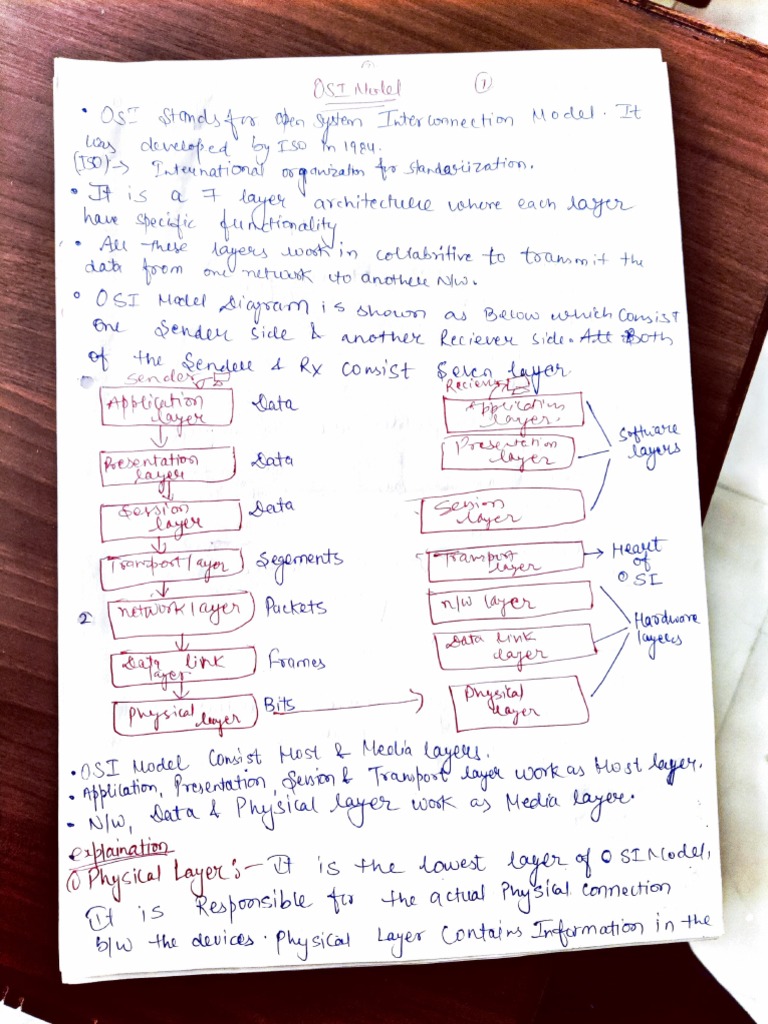 OSI Model ①
• OSI stands for open system Interconnection Model. It
was developed by ISO in 1984.
(ISO) → International organization for standariization.
• It is a 7 layer architecture where each layer
have specific functionality
• All these layers work in collabritive to transmit the
data from one network to another N/w.
• OSI Model Diagram is shown as Below which Consist
one Sender side & another Reciever side. All Both
of the Sender & Rx consist Seven layer.
Sender Reciever
Application layer Data Application layer.
Presentation layer Data Presentation layer Software layers
Session layer Data Session layer
Transport layer Segements Transport layer → Heart of OSI
2 network layer Packets n/w layer
Data link layer Frames Data link layer Hardware layers
Physical layer Bits Physical layer
• OSI Model Consist Host & Media layers.
• Application, Presentation, Session & Transport layer work as Host layer.
• N/w, Data & Physical layer work as Media layer.
explaination
① Physical Layer :- It is the lowest layer of OSI Model,
It is Responsible for the actual Physical connection
b/w the devices. Physical Layer Contains Information in the